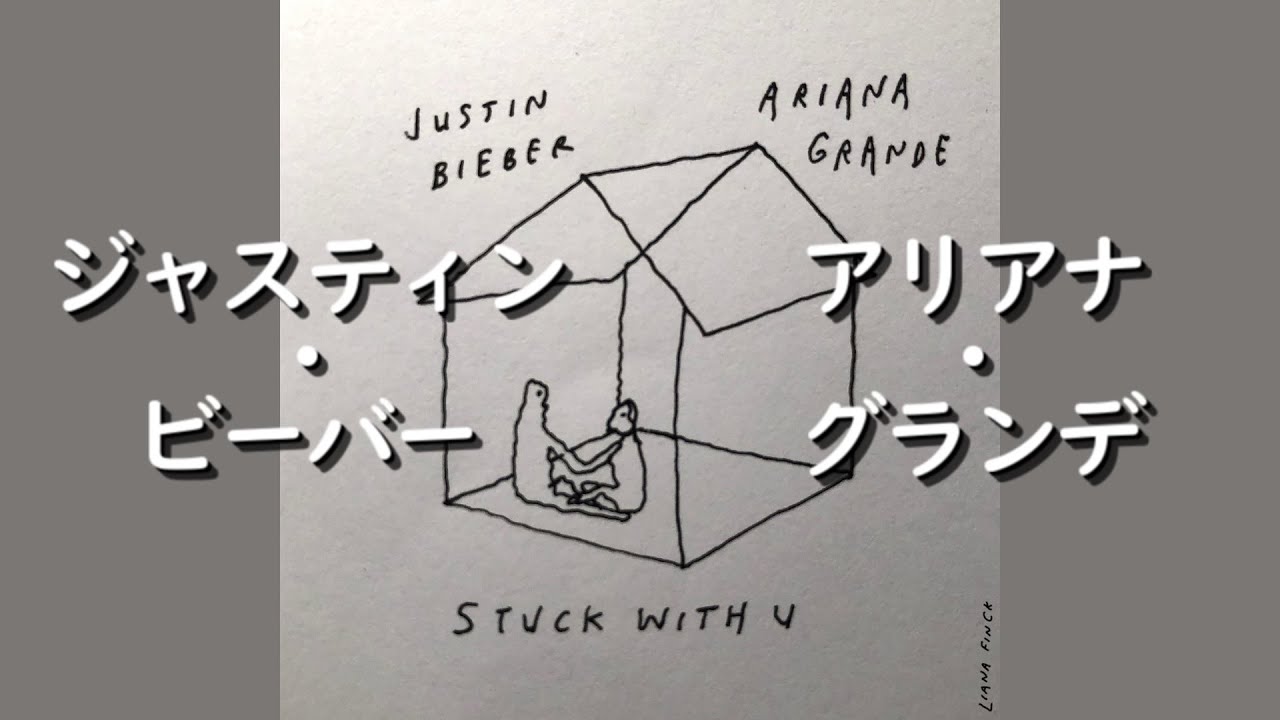 JUSTIN
BIEBER
ARIANA
GRANDE
ジャスティン
・
ビーバー
アリアナ
・
グランデ
STUCK WITH U
LIANA FINCK